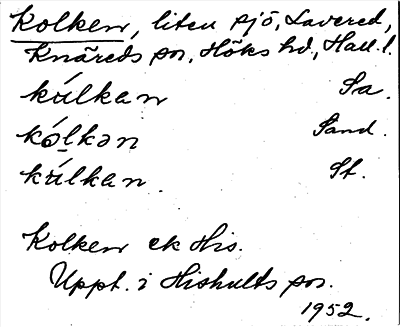 Kolken, liten sjö, Lavered,
Knäreds sn, Höks hd, Hall. l.
kúlkan Sa.
kǫ́lkən Sand.
kúlkan. St.
Kolken ek His.
Uppt. i Hishults sn.
1952.